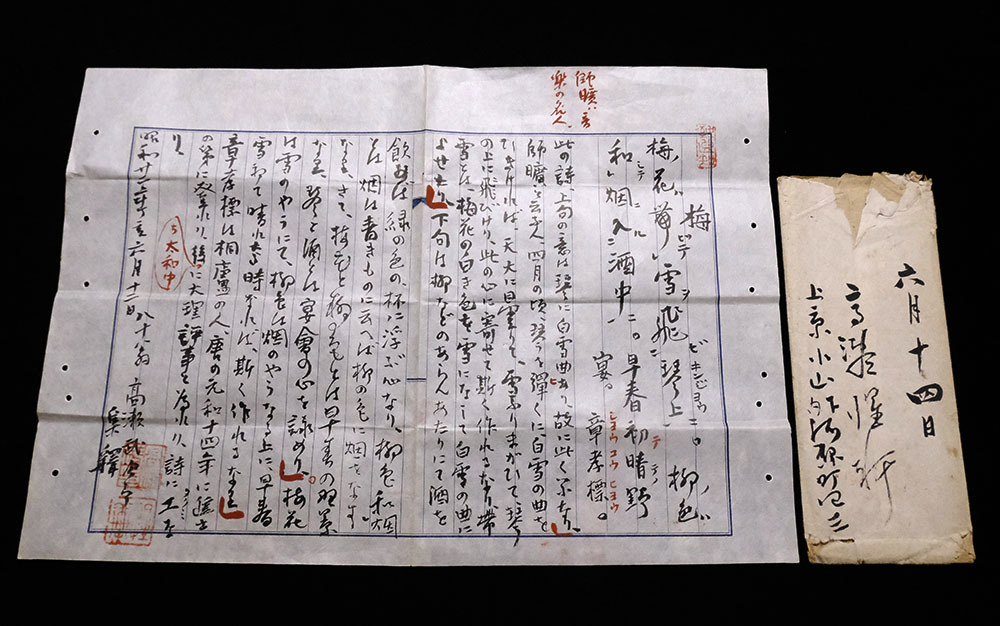 師曠ハ音
楽の名人、
梅
梅花帯雪飛琴上、柳色
和烟入酒中、早春初晴野
宴 章孝標。
此の詩、上句の意は琴に白雪曲あり、故に此く云ふなり、
師曠と云ふ人、四月の頃、琴を弾くに、白雪の曲を
ひきければ、天大に曇りて、雪ふりまがひて琴
の上に飛びけり、此の心に寄せて斯く作れるなり、帯
雪とは、梅花の白き色を雪になして白雪の曲に
よせたり、下句は柳などのあらんあたりにて酒を
飲めば緑の色の、杯に浮ぶ心なり、柳色和烟
とは、烟は青きものに云へば柳の色に烟をなす
なり、さて、梅花と柳色とは早春の羽景
なり、琴と酒とは宴会の心を詠めり、梅花
は雪のやうにて、柳色は烟のやうなる上に早春
雪和て晴れたる時なれば、斯く作れるなり
章孝標は桐廬の人、唐の元和十四年に進士
の第に登れり、後に大理評事と為れり、詩に工な
り、
ら太和中
昭和廿二年六月十二日 八十八翁 高瀬武次郎
集釋
六月十四日
高瀬惺軒
上京小山下